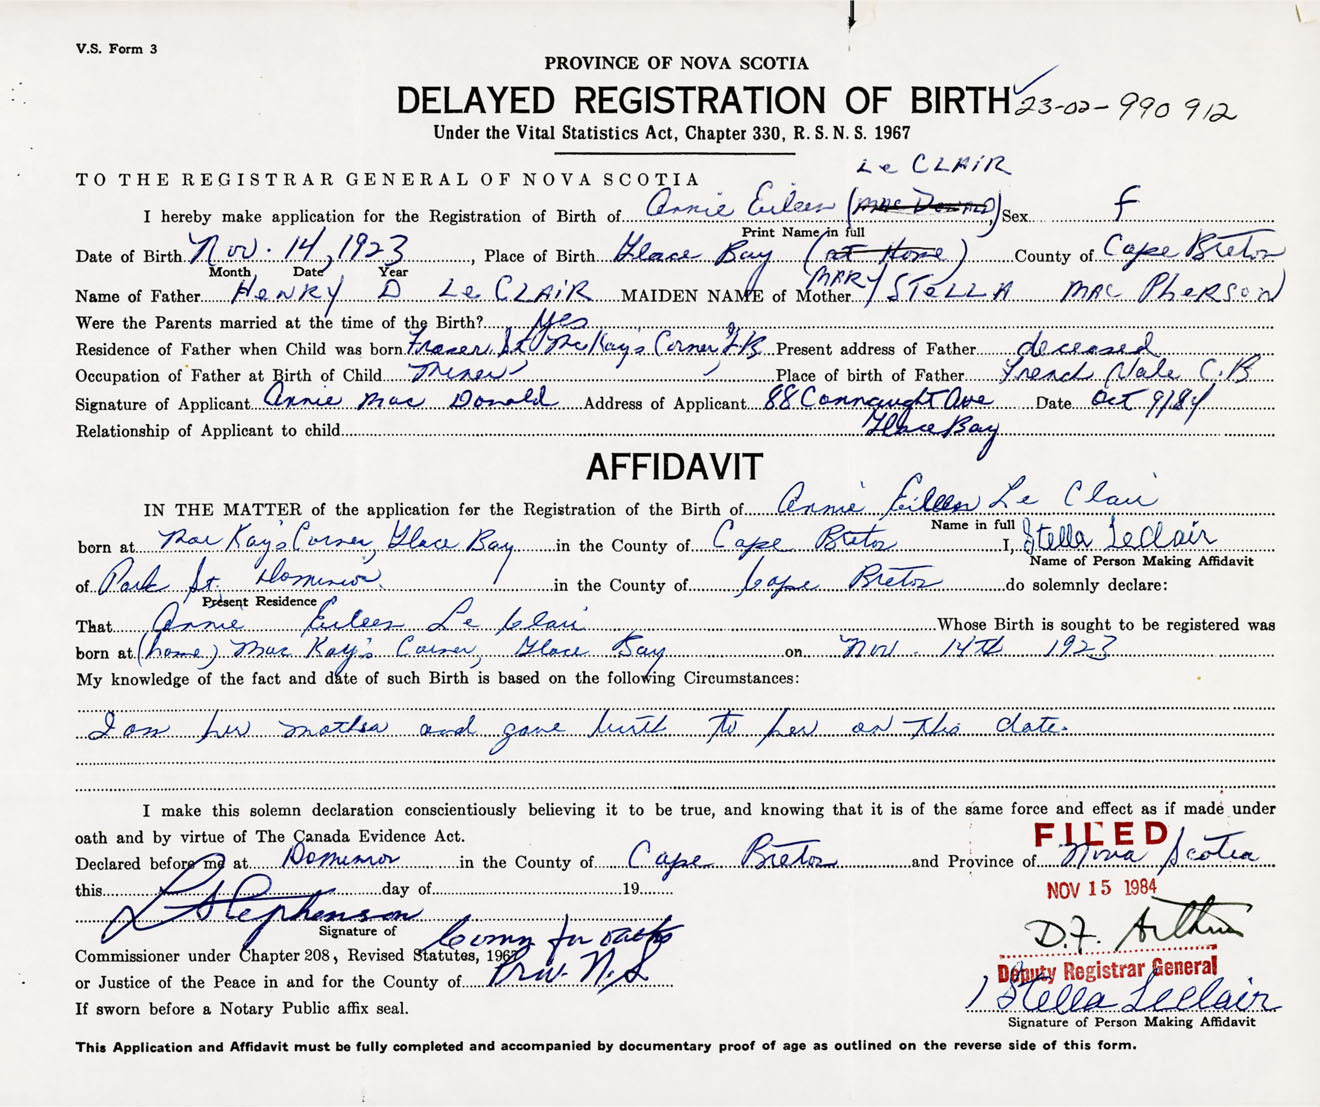 V.S. Form 3
PROVINCE OF NOVA SCOTIA
DELAYED REGISTRATION OF BIRTH 23-02-990 912
Under the Vital Statistics Act, Chapter 330, R.S.N.S. 1967
Le CLAIR
TO THE REGISTRAR GENERAL OF NOVA SCOTIA
I hereby make application for the Registration of Birth of Annie Eileen (Mac Donald) Sex f
Print Name in full
Date of Birth Nov. 14, 1923, Place of Birth Glace Bay (at Home) County of Cape Breton
Month Date Year
MARY
Name of Father HENRY D Le CLAIR MAIDEN NAME of Mother STELLA MAC PHERSON
Were the Parents married at the time of the Birth? yes
Residence of Father when Child was born Fraser St McKay's Corner GB Present address of Father deceased
Occupation of Father at Birth of Child Miner Place of birth of Father French Vale C.B
Signature of Applicant Annie Mac Donald Address of Applicant 88 Connaught Ave Date Oct 9/84
Relationship of Applicant to child Glace Bay
AFFIDAVIT
IN THE MATTER of the application for the Registration of the Birth of Annie Eileen Le Clair
Name in full
born at Mac Kay's Corner, Glace Bay in the County of Cape Breton I, Stella LeClair
Name of Person Making Affidavit
of Park St. Dominion in the County of Cape Breton do solemnly declare:
Present Residence
That Annie Eileen Le Clair Whose Birth is sought to be registered was
born at (home) Mac Kay's Corner, Glace Bay on Nov. 14th 1923
My knowledge of the fact and date of such Birth is based on the following Circumstances:
I am her mother and gave birth to her on this date.
I make this solemn declaration conscientiously believing it to be true, and knowing that it is of the same force and effect as if made under
oath and by virtue of The Canada Evidence Act.
FILED
Declared before me at Dominion in the County of Cape Breton and Province of Nova Scotia
this day of 19
NOV 15 1984
L Stephenson
D.F. Arthur
Signature of
Comm for oaths
Commissioner under Chapter 208, Revised Statutes, 1967
Deputy Registrar General
or Justice of the Peace in and for the County of Prov. N.S
Stella LeClair
If sworn before a Notary Public affix seal.
Signature of Person Making Affidavit
This Application and Affidavit must be fully completed and accompanied by documentary proof of age as outlined on the reverse side of this form.